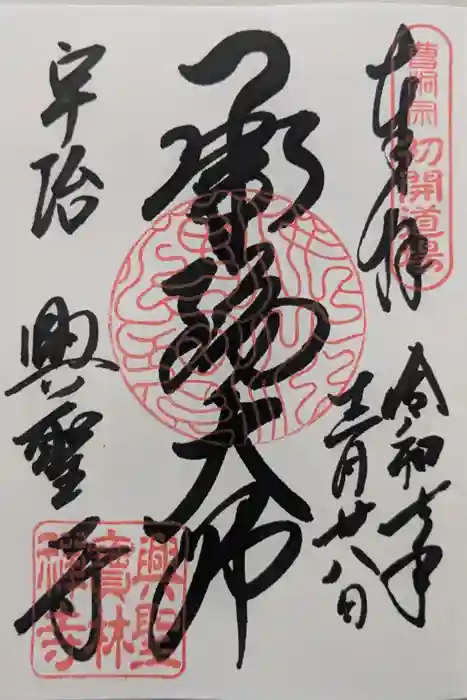 曹洞宗
初開道場
奉拝
令和
年
十二月廿八日
承陽大師
宇治
興聖寺
興聖
寶林
禪寺